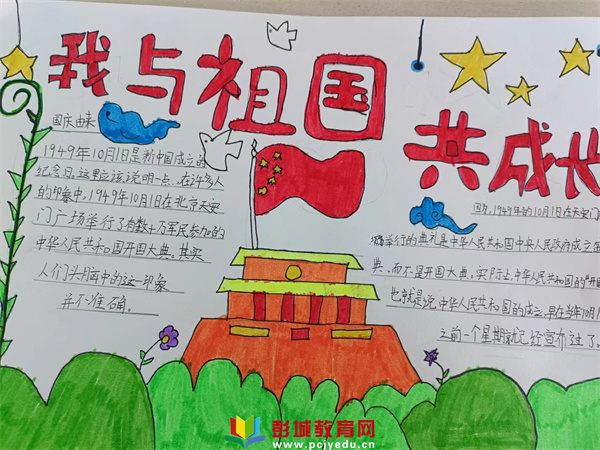 我与祖国
共成长
国庆由来
1949年10月1日是新中国成立的
纪念日。这里应该说明一点，在许多人
的印象中，1949年10月1日在北京天安
门广场举行了有数十万军民参加的
中华人民共和国开国大典。其实
人们头脑中的这一印象
并不准确。
因为，1949年的10月1日在天安门
举行的典礼是中华人民共和国中央人民政府成立
典，而不是开国大典。实际上，中华人民共和国的"开
也就是说中华人民共和国的成立，早在当年10月1
之前一个星期就已经宣布过了。
彭城教育网
www.pcjyedu.cn